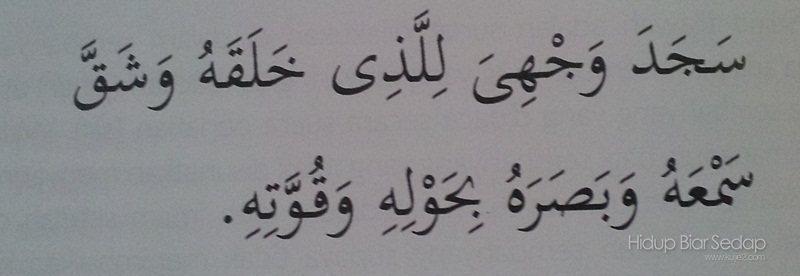 سَجَدَ وَجْهِىَ لِلَّذِى خَلَقَهُ وَشَقَّ
سَمْعَهُ وَبَصَرَهُ بِحَوْلِهِ وَقُوَّتِهِ.
Hidup Biar Sedap
www.kuje2.com